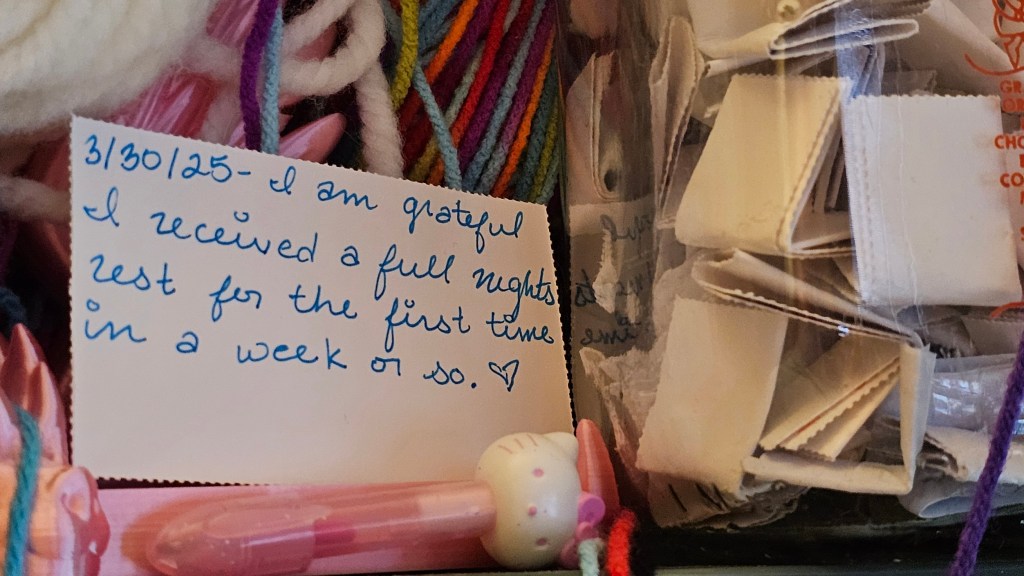 3/30/25- I am grateful
I received a full nights
rest for the first time
in a week or so. ♡
GR
OR
CHO
CO